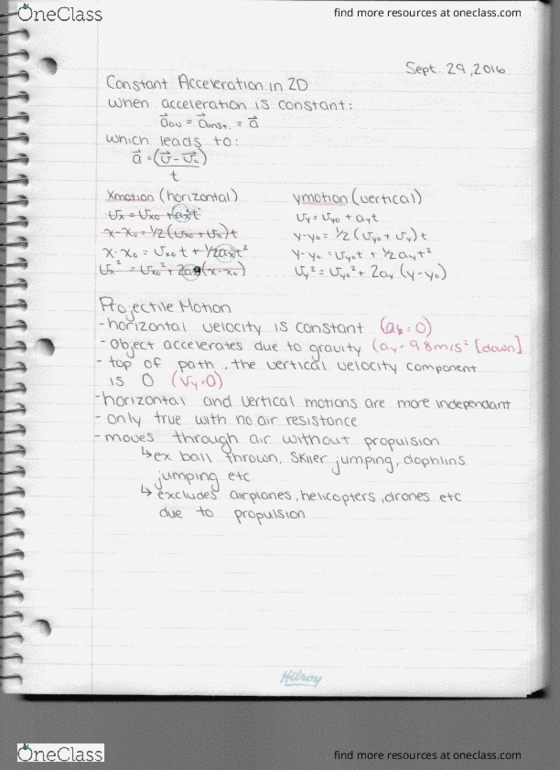 OneClass
find more resources at oneclass.com
Sept. 29, 2016
Constant Acceleration in 2D
when acceleration is constant:
a⃗av = a⃗inst. = a⃗
which leads to:
a⃗ = (v⃗ - v⃗o)
t
xmotion (horizontal)
vx = vxo + axt
x-xo = 1/2 (vxo + vx) t
x-xo = vxo t + 1/2 axt²
vx² = vxo² + 2ax (x-xo)
ymotion (vertical)
vy = vyo + ayt
y-yo = 1/2 (vyo + vy) t
y-yo = vyot + 1/2 ayt²
vy² = vyo² + 2ay (y-yo)
Projectile Motion
- horizontal velocity is constant (ax = 0)
- object accelerates due to gravity (ay = 9.8m/s² [down]
- top of path, the vertical velocity component
is 0 (vy=0)
- horizontal and vertical motions are more independant
- only true with no air resistance
- moves through air without propulsion
↳ ex ball thrown, skiier jumping, dophlins
jumping etc
↳ excludes airplanes, helicopters, drones etc
due to propulsion
Hilroy
OneClass
find more resources at oneclass.com